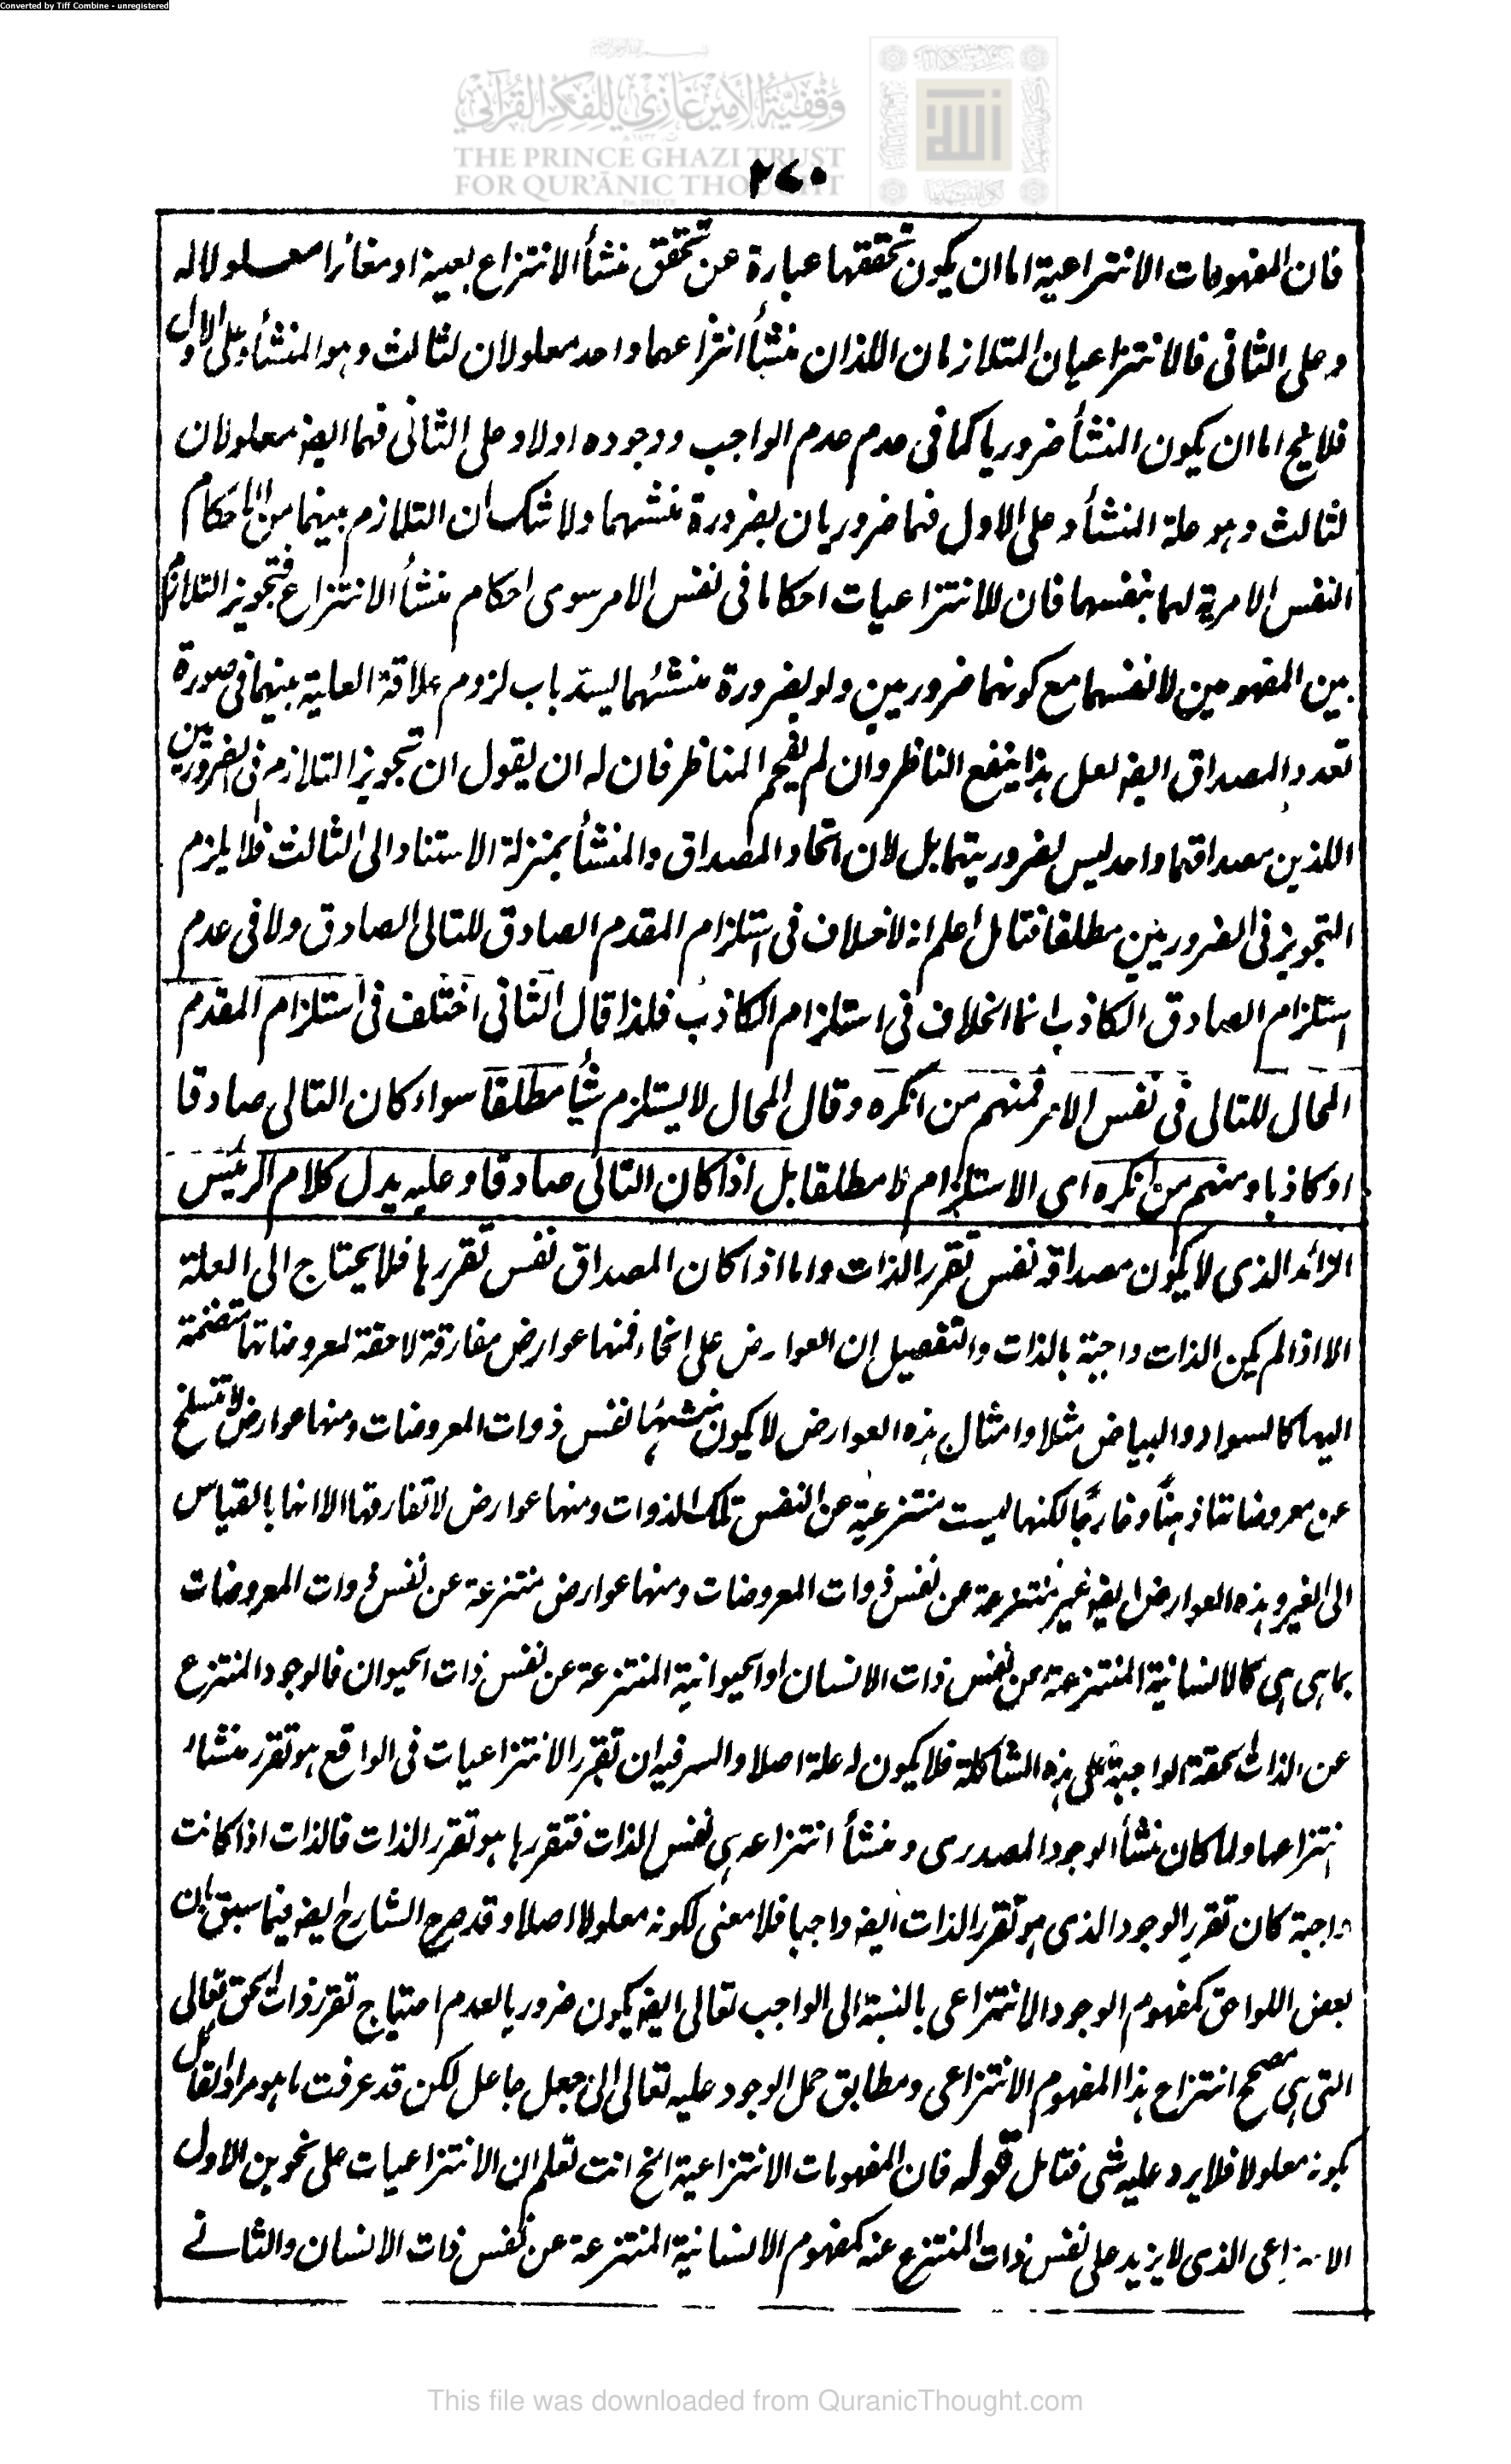 Converted by Tiff Combine - unregistered
وقفية الأمير غازي للفكر القرآني
THE PRINCE GHAZI TRUST
FOR QUR'ĀNIC THOUGHT
٢٧٠
فان المفهومات الانتزاعية اما ان يكون تحققها عبارة عن تحقق منشأ الانتزاع بعينه او مغائرا معلولا له
وعلى الثانى فالانتزاعيان المتلازمان اللذان منشأ انتزاعهما واحد معلولان لثالث وهو المنشأ وعلى الاول
فلا يخ اما ان يكون المنشأ ضروريا كما فى عدم عدم الواجب ووجوده اولا وعلى الثانى فهما ايضا معلولان
لثالث وهو علة المنشأ وعلى الاول فهما ضروريان بضرورة منشئهما ولا شك ان التلازم بينهما من الاحكام
النفس الامرية لهما بنفسهما فان للانتزاعيات احكاما فى نفس الامر سوى احكام منشأ الانتزاع فتجويز التلازم
بين المفهومين لانفسهما مع كونهما ضروريين ولو بضرورة منشئهما يسد باب لزوم علاقة العلية بينهما فى صورة
تعدد المصداق ايضا لعل هذا ينفع الناظر وان لم يفحم المناظر فان له ان يقول ان تجويز التلازم فى الضروريين
اللذين مصداقهما واحد ليس لضروريتهما بل لان اتحاد المصداق والمنشأ بمنزلة الاستناد الى الثالث فلا يلزم
التجويز فى الضروريين مطلقا فتامل اعلم انه لا خلاف فى استلزام المقدم الصادق للتالى الصادق ولا فى عدم
استلزام الصادق الكاذب انما الخلاف فى استلزام الكاذب فلذا قال الثانى اختلف فى استلزام المقدم
المحال للتالى فى نفس الامر فمنهم من انكره وقال المحال لا يستلزم شيأ مطلقا سواء كان التالى صادقا
او كاذبا ومنهم من انكره اى الاستلزام لا مطلقا بل اذا كان التالى صادقا وعليه يدل كلام الرئيس
الزائد الذى لا يكون مصداقه نفس تقرر الذات واما اذا كان المصداق نفس تقررها فلا يحتاج الى العلة
الا اذا لم يكن الذات واجبة بالذات والتفصيل ان العوارض على انحاء فمنها عوارض مفارقة لاحقة لمعروضاتها متضمنة
اليها كالسواد والبياض مثلا وامثال هذه العوارض لا يكون منشئها نفس ذوات المعروضات ومنها عوارض لا تنسلخ
عن معروضاتنا ذهنا وخارجا لكنها ليست منتزعية عن النفس تلك الذوات ومنها عوارض لا تفارقها الا انها بالقياس
الى الغير وهذه العوارض ايضا غير منتزعة عن نفس ذوات المعروضات ومنها عوارض منتزعة عن نفس ذوات المعروضات
بما هى هى كالانسانية المنتزعة عن نفس ذات الانسان او الحيوانية المنتزعة عن نفس ذات الحيوان فالوجود المنتزع
عن الذات الحقة الواجبة على هذه الشاكلة فلا يكون له علة اصلا والسر فيه ان تقرر الانتزاعيات فى الواقع هو تقرر منشاء
انتزاعها ولما كان منشأ الوجود المصدرى ومنشأ انتزاعه هى نفس الذات فتقررها هو تقرر الذات فالذات اذا كانت
واجبة كان تقرر الوجود الذى هو تقرر الذات ايضا واجبا فلا معنى لكونه معلولا اصلا وقد صرح الشارح ايضا فيما سبق بان
بعض اللواحق كمفهوم الوجود الانتزاعى بالنسبة الى الواجب تعالى ايضا يكون ضروريا لعدم احتياج تقرر ذات الحق تعالى
التى هى مصحح انتزاع هذا المفهوم الانتزاعى ومطابق حمل الوجود عليه تعالى الى جعل جاعل لكن قد عرفت ما هو مراد القائل
بكونه معلولا فلا يرد عليه شى فتامل قوله فان المفهومات الانتزاعية الخ انت تعلم ان الانتزاعيات على نحوين الاول
الانتزاعى الذى لا يزيد على نفس ذات المنتزع عنه كمفهوم الانسانية المنتزعة عن نفس ذات الانسان والثانى
This file was downloaded from QuranicThought.com